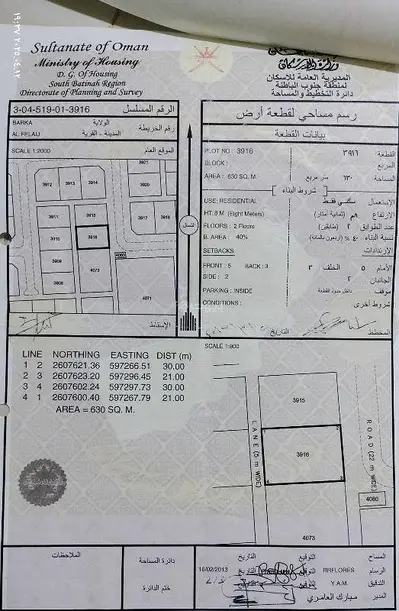 Sultanate of Oman
Ministry of Housing
D. G. Of Housing
South Batinah Region
Directorate of Planning and Survey
وزارة الإسكان
المديرية العامة للإسكان
لمنطقة جنوب الباطنة
دائرة التخطيط والمساحة
3-04-519-01-3916
الرقم المسلسل
BARKA
الولاية
AL FELAIJ
المدينة - القرية
رقم الخريطة
SCALE 1:2000
الموقع العام
3912
3913
3914
3911
3915
3916
3918
4073
4071
4080
الإسقاط
الشمال
رسم مساحي لقطعة أرض
بيانات القطعة
PLOT NO : 3916
٣٩١٦
القطعة
BLOCK :
المربع
AREA : 630 SQ. M.
٦٣٠ متر مربع
المساحة
شروط البناء
USE: RESIDENTIAL
سكني فقط
الاستعمال
HT.8 M (Eight Meters)
٨م (ثمانية أمتار)
الارتفاع
FLOORS : 2 Floors
٢ (طابقين)
عدد الطوابق
B. AREA: 40%
٤٠ % (أربعون بالمائة)
نسبة البناء
SETBACKS
الارتدادات
FRONT : 5 BACK : 3
الأمام ٥ الخلف ٣
SIDE : 2
الجانبان
PARKING : INSIDE
موقف داخل حدود القطعة
CONDITIONS :
شروط أخرى
التاريخ
المخطط
SCALE 1:900
LINE NORTHING EASTING DIST (m)
1 2 2607621.36 597266.51 30.00
2 3 2607623.20 597296.45 21.00
3 4 2607602.24 597297.73 30.00
4 1 2607600.40 597267.79 21.00
AREA = 630 SQ. M.
3915
3916
4073
4080
LANE (5 m WIDE)
ROAD (22 m WIDE)
الملاحظات
دائرة المساحة
ختم الدائرة
التاريخ
التوقيع
المساح
18/02/2013
التاريخ
التوقيع
RRFLORES
الرسام
التاريخ
التوقيع
Y.A.M
التدقيق
مبارك العامري
المدير